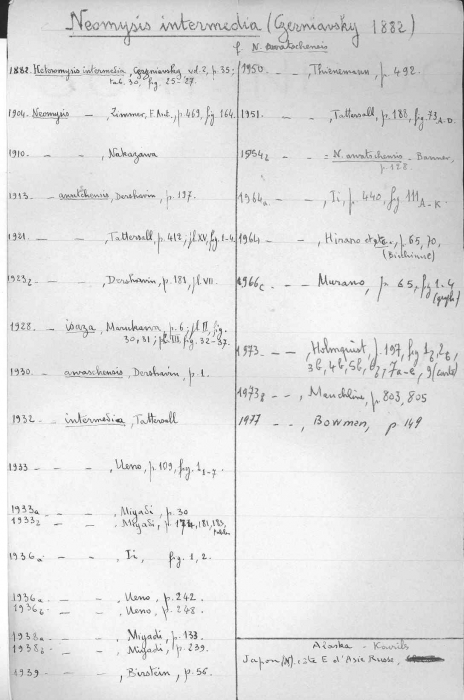 Neomysis intermedia (Czerniavsky 1882)
f. N. awatschensis
1882. Heteromysis intermedia, Czerniavsky vol. 2, p. 35;
tab. 30, fig. 25-27.
1904. Neomysis - , Zimmer, F. Ant., p. 469, fig 164.
1910. - - , Nakazawa
1913. - awatchensis, Dershavin, p. 197.
1921. - - , Tattersall, p. 412; pl XV, fig. 1-4.
1923 - - , Dershavin, p. 181, pl. VII.
1928 - isaza, Marukawa, p. 6; pl II, fig.
30, 31; pl. III, fig. 32-37.
1930. - awaschensis, Dershavin, p. 1.
1932 - intermedia, Tattersall
1933 - - , Ueno, p. 109, fig. 1 1-7.
1933a - - , Miyadi, p. 30
1933 - - , Miyadi, p. 174, 181, 183,
1936a - - , Ii, fig. 1, 2.
1936a - - , Ueno, p. 242.
1936b - - , Ueno, p. 248.
1938a - - , Miyadi, p. 133.
1938b - - , Miyadi, p. 239.
1939 - - , Birstein, p. 56.
1950. - - , Thienemann, p. 492.
1951. - - , Tattersall, p. 188, fig. 73 A-D.
1954b - - N. awatschensis - Banner,
p. 128.
1964a - - , Ii, p. 440, fig 111 A-K.
1964 - - , Hirano et , p. 65, 70,
1966c - - , Murano, p. 65, fig 1-4
(graph)
1973 - - , Holmquist, p. 197, fig
3b, 4b, 5b, 7a-e, 9 (carte)
1973 - - , Mauchline, p. 803, 805
1977 - - , Bowman, p. 149
Alaska - Kouriles
Japon (N). côte E d'Asie Russe,